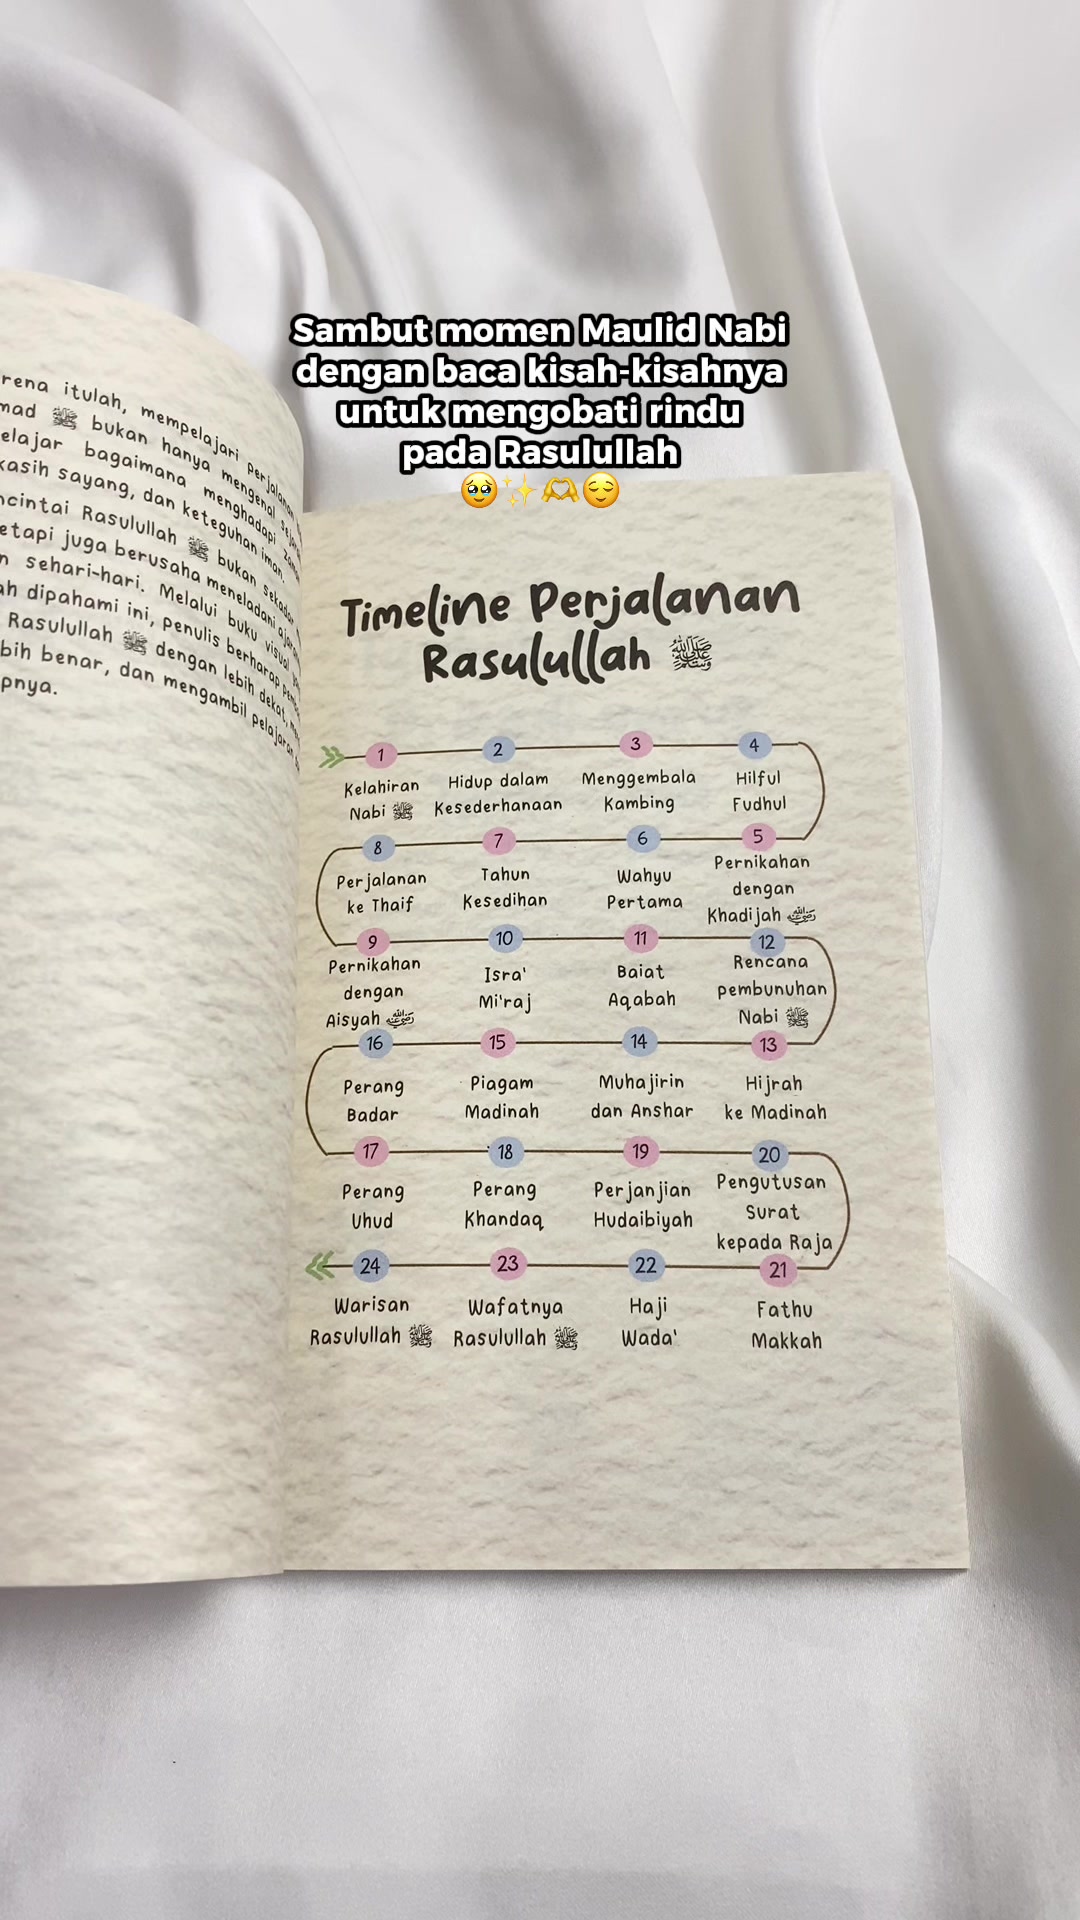 Sambut momen Maulid Nabi
dengan baca kisah-kisahnya
untuk mengobati rindu
pada Rasulullah
🥹✨🫶😌
rena itulah, mempelajari perjalanan
mad ﷺ bukan hanya mengenal
elajar bagaimana menghadapi
kasih sayang, dan keteguhan iman.
ncintai Rasulullah ﷺ bukan
etapi juga berusaha meneladani
n sehari-hari. Melalui buku visual
ah dipahami ini, penulis berharap
Rasulullah ﷺ dengan lebih dekat,
bih benar, dan mengambil pelajaran
pnya.
Timeline Perjalanan
Rasulullah ﷺ
1 2 3 4
Kelahiran Hidup dalam Menggembala Hilful
Nabi ﷺ Kesederhanaan Kambing Fudhul
8 7 6 5
Perjalanan Tahun Wahyu Pernikahan
ke Thaif Kesedihan Pertama dengan
Khadijah
9 10 11 12
Pernikahan Isra' Baiat Rencana
dengan Mi'raj Aqabah pembunuhan
Aisyah Nabi ﷺ
16 15 14 13
Perang Piagam Muhajirin Hijrah
Badar Madinah dan Anshar ke Madinah
17 18 19 20
Perang Perang Perjanjian Pengutusan
Uhud Khandaq Hudaibiyah Surat
kepada Raja
24 23 22 21
Warisan Wafatnya Haji Fathu
Rasulullah ﷺ Rasulullah ﷺ Wada' Makkah